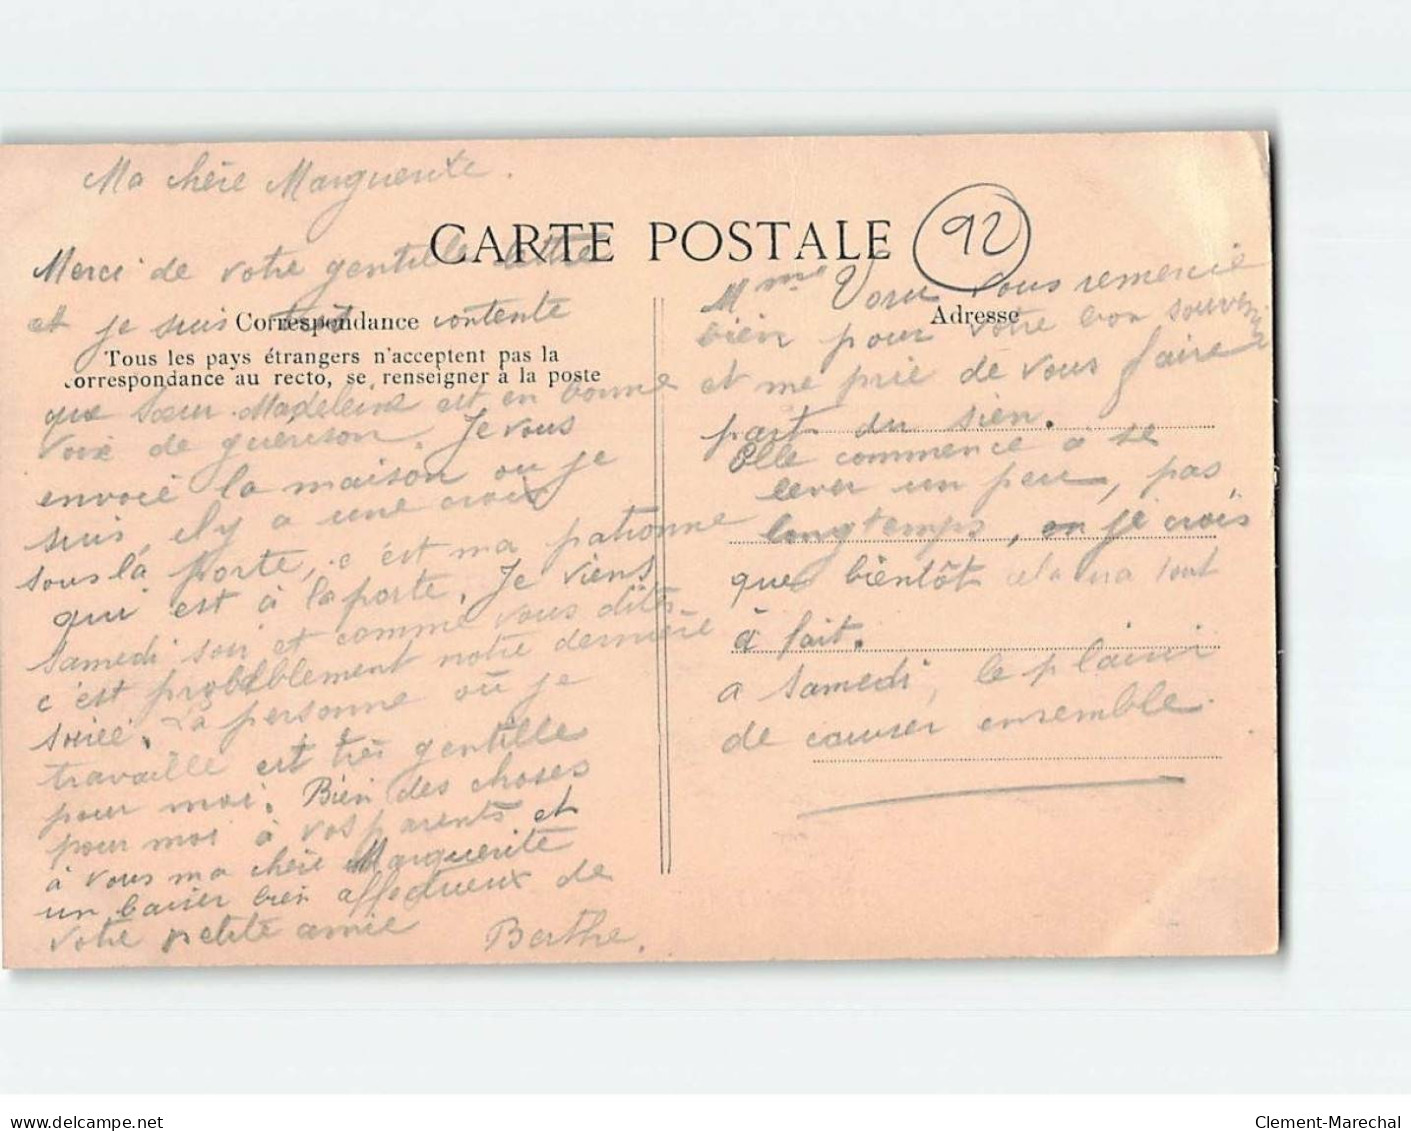 Ma chère Marguerite.
CARTE POSTALE
92
Merci de votre gentille lettre
et je suis tout contente
Correspondance
Tous les pays étrangers n'acceptent pas la
correspondance au recto, se renseigner à la poste
que Sœur Madeleine est en bonne
voie de guérison. Je vous
envoie la maison où je
suis, il y a une croix
sous la porte, c'est ma patronne
qui est à la porte. Je viens
samedi soir et comme vous dites
c'est probablement notre dernière
soirée. La personne où je
travaille est très gentille
pour moi. Bien des choses
pour moi à vos parents et
à vous ma chère Marguerite
un baiser bien affectueux de
votre petite amie
Berthe.
Adresse
Mme vous remercie
bien pour votre bon souvenir
et me prie de vous faire
part du sien.
Elle commence à se
lever un peu, pas
longtemps, je crois
que bientôt cela ira tout
à fait.
a samedi, le plaisir
de causer ensemble.
delcampe.net
Clement-Marechal